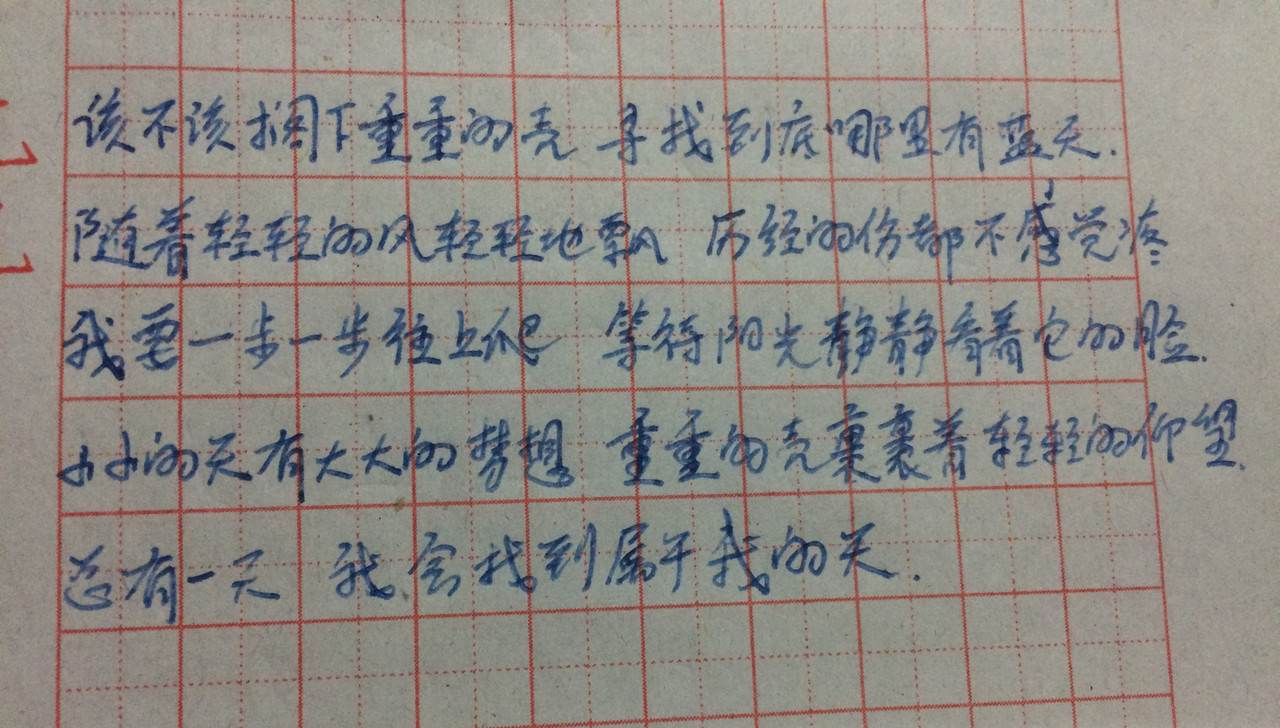 该不该搁下重重的壳 寻找到底哪里有蓝天.
随着轻轻的风轻轻地飘 历经的伤都不感觉疼
我要一步一步往上爬 等待阳光静静看着它的脸.
小小的天有大大的梦想 重重的壳裹裹着轻轻的仰望.
总有一天 我会找到属于我的天.